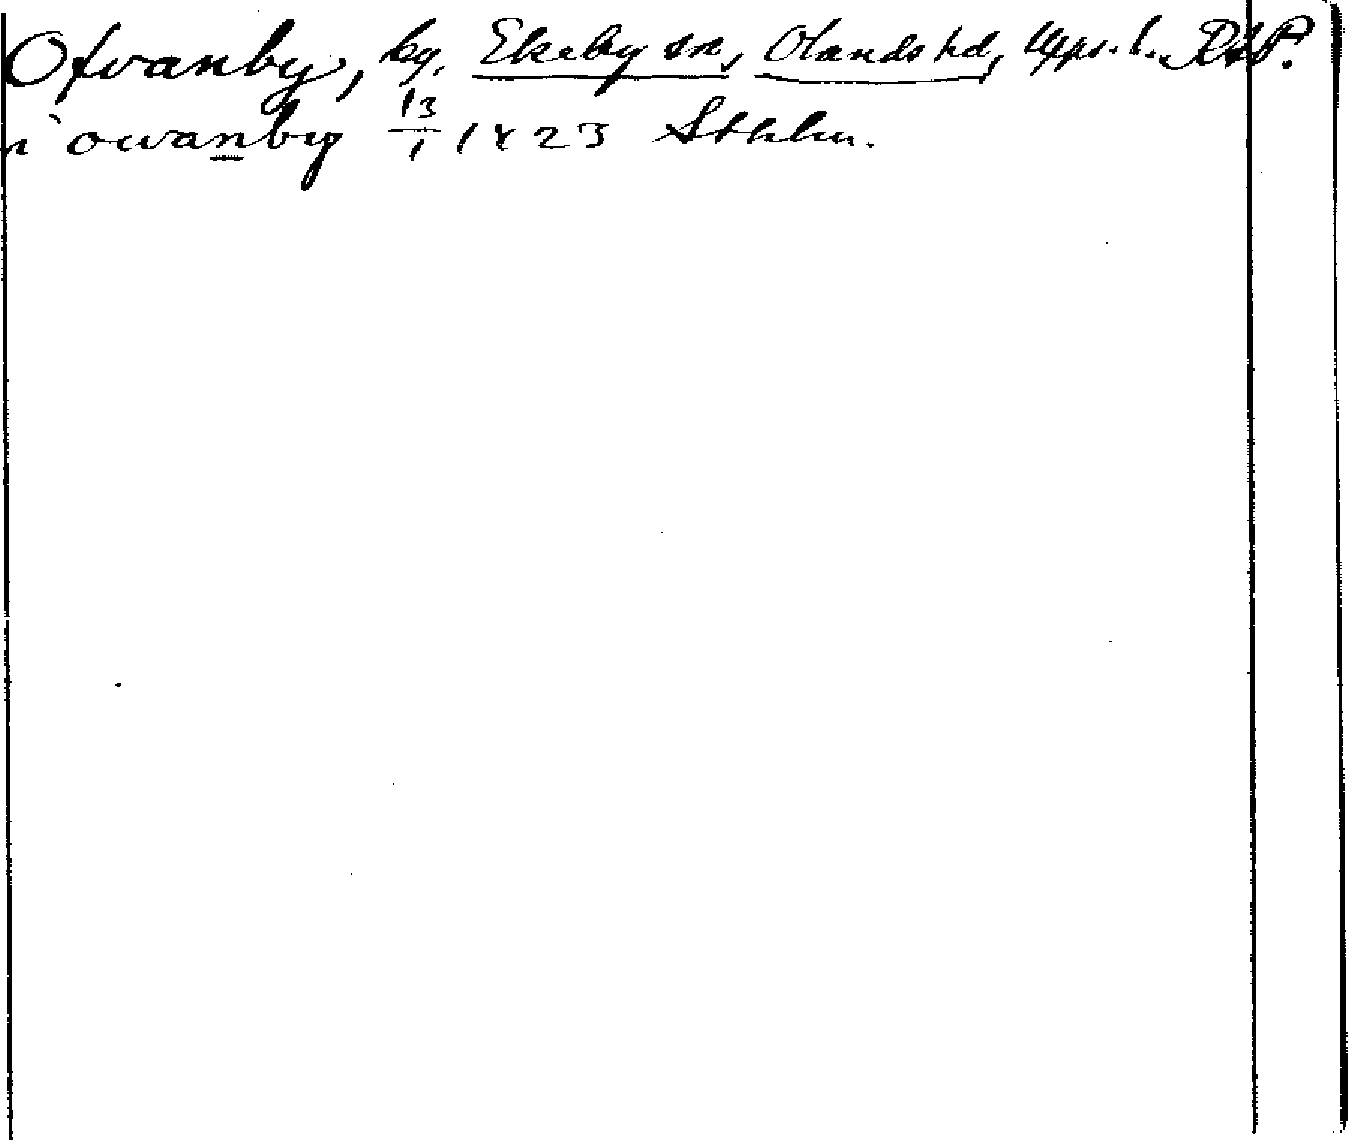 Ofvanby, by, Ekeby sn, Olands hd, Upps. l. RAP.
i owanby 13/1 1423 Sthlm.